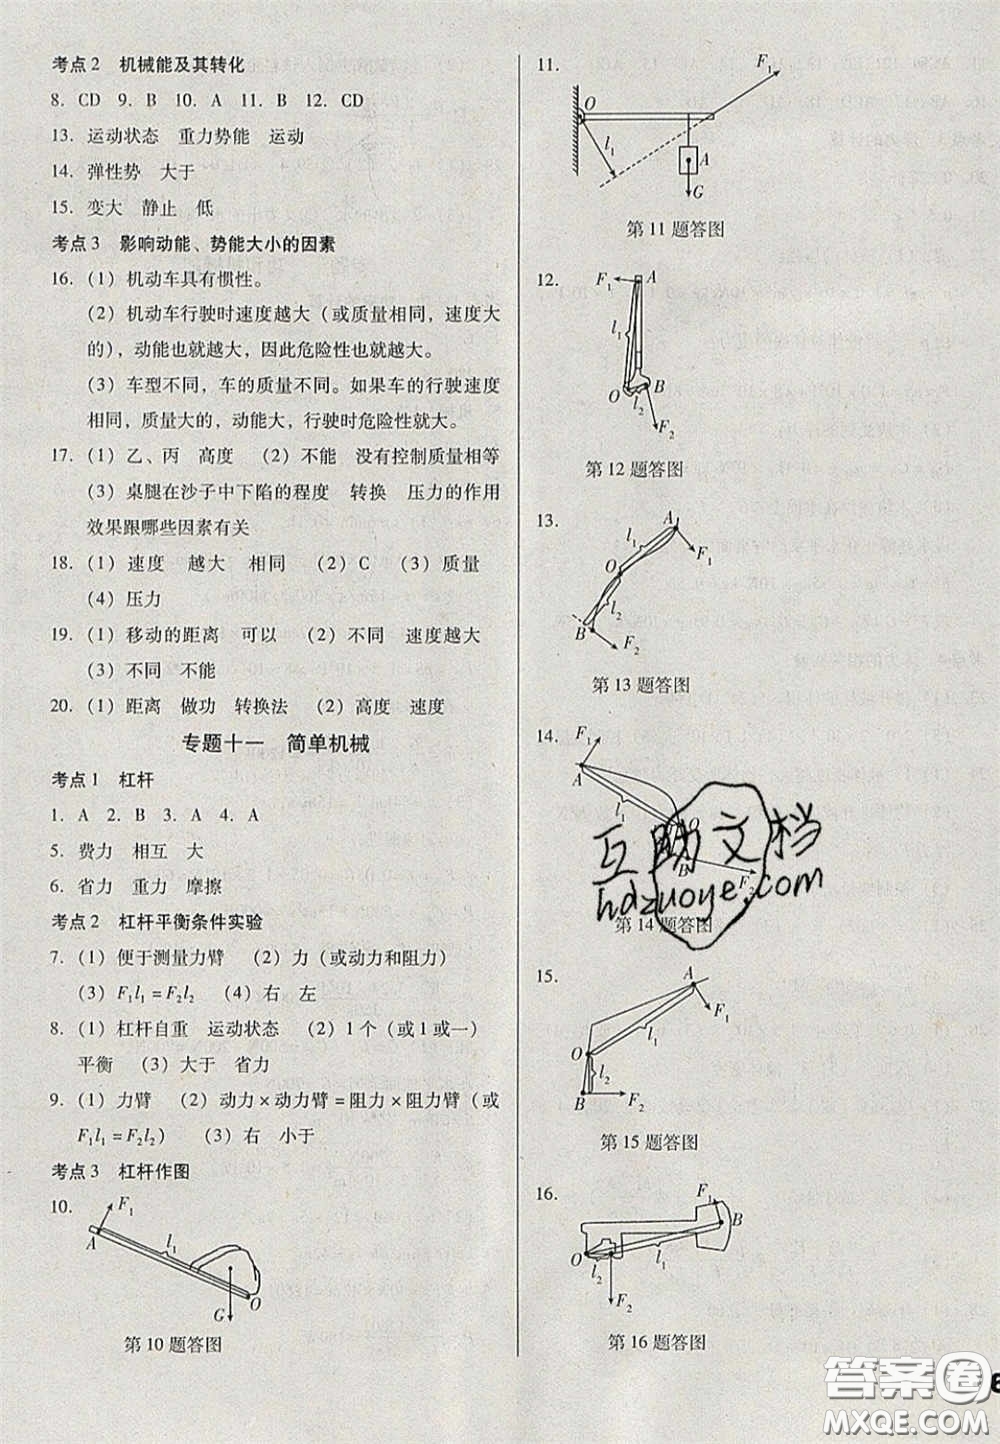 考点2 机械能及其转化
8. CD 9. B 10. A 11. B 12. CD
13. 运动状态 重力势能 运动
14. 弹性势 大于
15. 变大 静止 低
考点3 影响动能、势能大小的因素
16.（1）机动车具有惯性。
（2）机动车行驶时速度越大（或质量相同，速度大
的），动能也就越大，因此危险性也就越大。
（3）车型不同，车的质量不同。如果车的行驶速度
相同，质量大的，动能大，行驶时危险性就大。
17.（1）乙、丙 高度 （2）不能 没有控制质量相等
（3）桌腿在沙子中下陷的程度 转换 压力的作用
效果跟哪些因素有关
18.（1）速度 越大 相同 （2）C （3）质量
（4）压力
19.（1）移动的距离 可以 （2）不同 速度越大
（3）不同 不能
20.（1）距离 做功 转换法 （2）高度 速度
专题十一 简单机械
考点1 杠杆
1. A 2. B 3. A 4. A
5. 费力 相互 大
6. 省力 重力 摩擦
考点2 杠杆平衡条件实验
7.（1）便于测量力臂 （2）力（或动力和阻力）
（3）F₁l₁＝F₂l₂ （4）右 左
8.（1）杠杆自重 运动状态 （2）1个（或1或一）
平衡 （3）大于 省力
9.（1）力臂 （2）动力×动力臂＝阻力×阻力臂（或
F₁l₁＝F₂l₂） （3）右 小于
考点3 杠杆作图
10.
F₁
A
l₁
G
O
第10题答图
11.
F₁
O
l₁
A
G
第11题答图
12.
F₁
A
l₁
O
l₂
B
F₂
第12题答图
13.
A
l₁
F₁
O
l₂
B
F₂
第13题答图
14.
F₁
A
l₁
O
B
F₂
第14题答图
互助文档
hdzuoye.com
15.
A
F₁
l₁
O
l₂
B
F₂
第15题答图
16.
F₁
B
l₁
O
l₂
F₂
第16题答图
答案圈
MXQE.COM
6